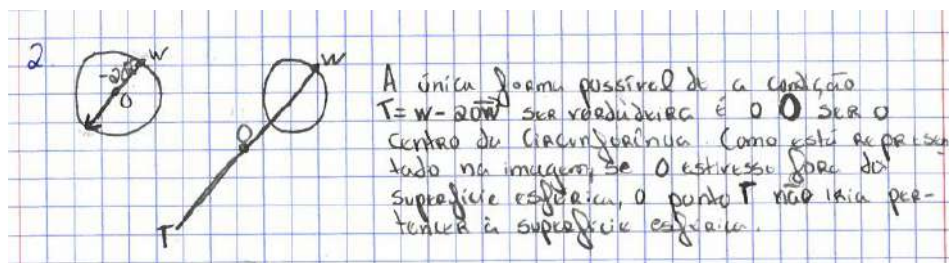 2
W
-2OW
O
W
O
T
A única forma possível de a condição
T = W - 2OW ser verdadeira é o O ser o
centro da circunferência. Como está represen
tado na imagem, se O estivesse fora da
superfície esférica, o ponto T não iria per-
tencer à superfície esférica.